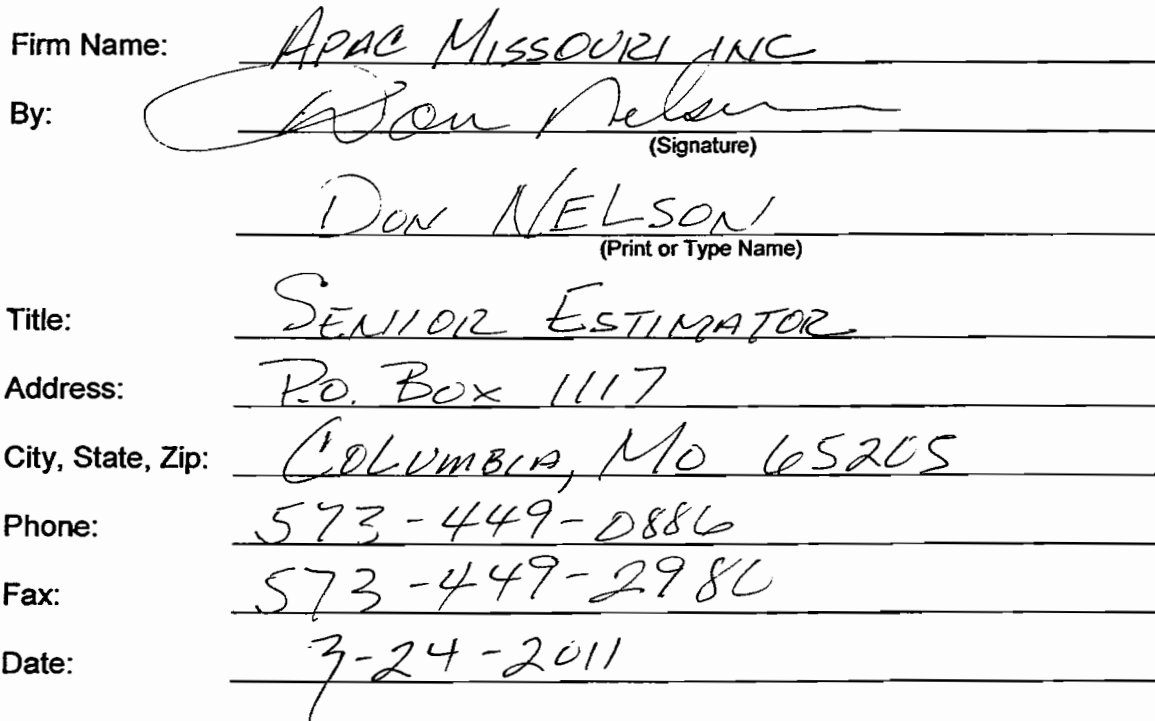 Firm Name: APAC MISSOURI INC
By: Don Nelson
(Signature)
DON NELSON
(Print or Type Name)
Title: SENIOR ESTIMATOR
Address: P.O. BOX 1117
City, State, Zip: COLUMBIA, MO 65205
Phone: 573-449-0886
Fax: 573-449-2980
Date: 3-24-2011